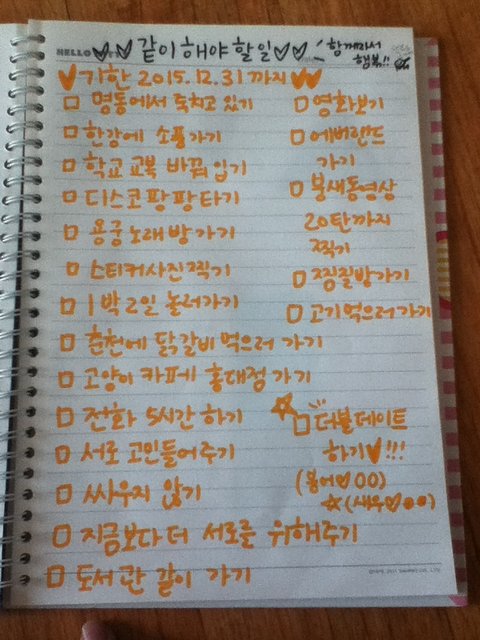 HELLO ♥♥ 같이 해야 할일 ♡♡ 함께라서
행복!!
♥ 기한 2015.12.31 까지 ♥♥
□ 명동에서 죽치고 있기
□ 한강에 소풍가기
□ 학교 교복 바꿔 입기
□ 디스코 팡팡타기
□ 용궁노래방가기
□ 스티커사진찍기
□ 1박 2일 놀러가기
□ 춘천에 닭갈비 먹으러 가기
□ 고양이 카페 홍대점 가기
□ 전화 5시간 하기
□ 서로 고민들어주기
□ 싸우지 않기
□ 지금보다 더 서로를 위해주기
□ 도서관 같이 가기
□ 영화보기
□ 에버랜드
가기
□ 붕새동영상
20탄까지
찍기
□ 찜질방가기
□ 고기먹으러가기
☆ □ 더블데이트
하기♥!!!
(붕어♡OO)
☆(새우♡OO)